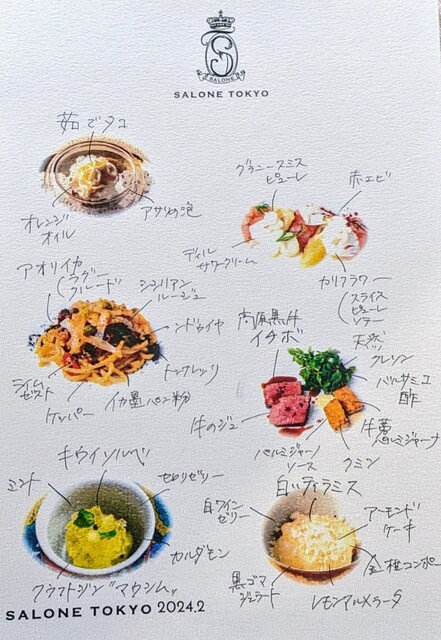 SALONE
SALONE TOKYO
茹でタコ
オレンジ
オイル
アサリの泡
グラニースミス
ピューレ
赤エビ
ディル
サワークリーム
カリフラワー
スライス
ピューレ
アオリイカ
ラグー
クルード
シシリアン
ルージュ
ンドゥイヤ
トンナレッリ
ライム
ゼスト
ケッパー
イカ墨パン粉
高原黒牛
イチボ
天然
クレソン
バルサミコ
酢
牛のジュ
パルミジャーノ
ソース
クミン
牛蒡
パルミジャーナ
キウイソルベ
ミント
セロリゼリー
カルダモン
クラフトジン"マウシム"
白いティラミス
白ワイン
ゼリー
アーモンド
ケーキ
金柑コンポート
黒ゴマ
ジェラート
レモンマルメラータ
SALONE TOKYO 2024.2